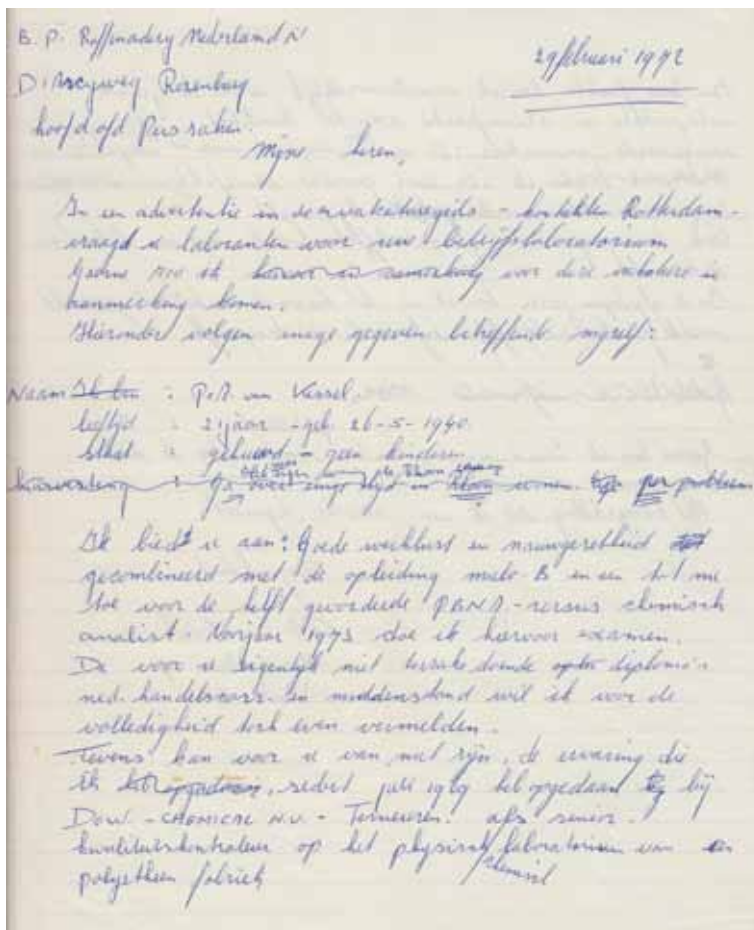 B. P. Raffinadery Nederland N
29 februari 1972
D'Arcyweg Rozenburg
hoofd afd Pers zaken.
Mijne heren,
In een advertentie in de vakaturegids - kontakten Rotterdam -
vraagd u laboranten voor uw bedrijfslaboratorium
Gaarne zou ik voor deze vakature in
aanmerking komen.
Hieronder volgen enige gegeven betreffende mijzelf:
Naam Ik ben : P.A. van Kassel,
leeftijd : 21 jaar - geb. 26-5-1940
staat : gehuwd - geen kinderen
: Ga enige tijd in wonen. per probleem
Ik bied u aan: Goede werklust en nauwgezetheid
gecombineerd met de opleiding mulo-B en een tot nu
toe voor de helft gevorderde P.B.N.A.-cursus chemisch
analist. Voorjaar 1973 doe ik hiervoor examen.
De voor u eigenlijk niet terzake doende diploma's
ned. handelscorr. en middenstand wil ik voor de
volledigheid toch even vermelden.
Tevens kan voor u van nut zijn, de ervaring die
ik, sedert juli 1969 heb opgedaan bij
DOW - CHEMICAL N.V. - Terneuzen. als senior-
kwaliteitskontroleur op het physisch/laboratorium van een
chemisch
polyetheen fabriek